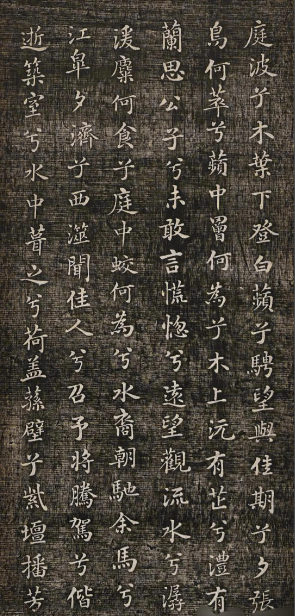 庭波兮木葉下登白蘋兮騁望與佳期兮夕張
鳥何萃兮蘋中罾何為兮木上沅有芷兮澧有
蘭思公子兮未敢言慌惚兮遠望觀流水兮潺
湲麋何食兮庭中蛟何為兮水裔朝馳余馬兮
江皐夕濟兮西澨聞佳人兮召予將騰駕兮偕
逝築室兮水中葺之兮荷盖蓀壁兮紫壇播芳